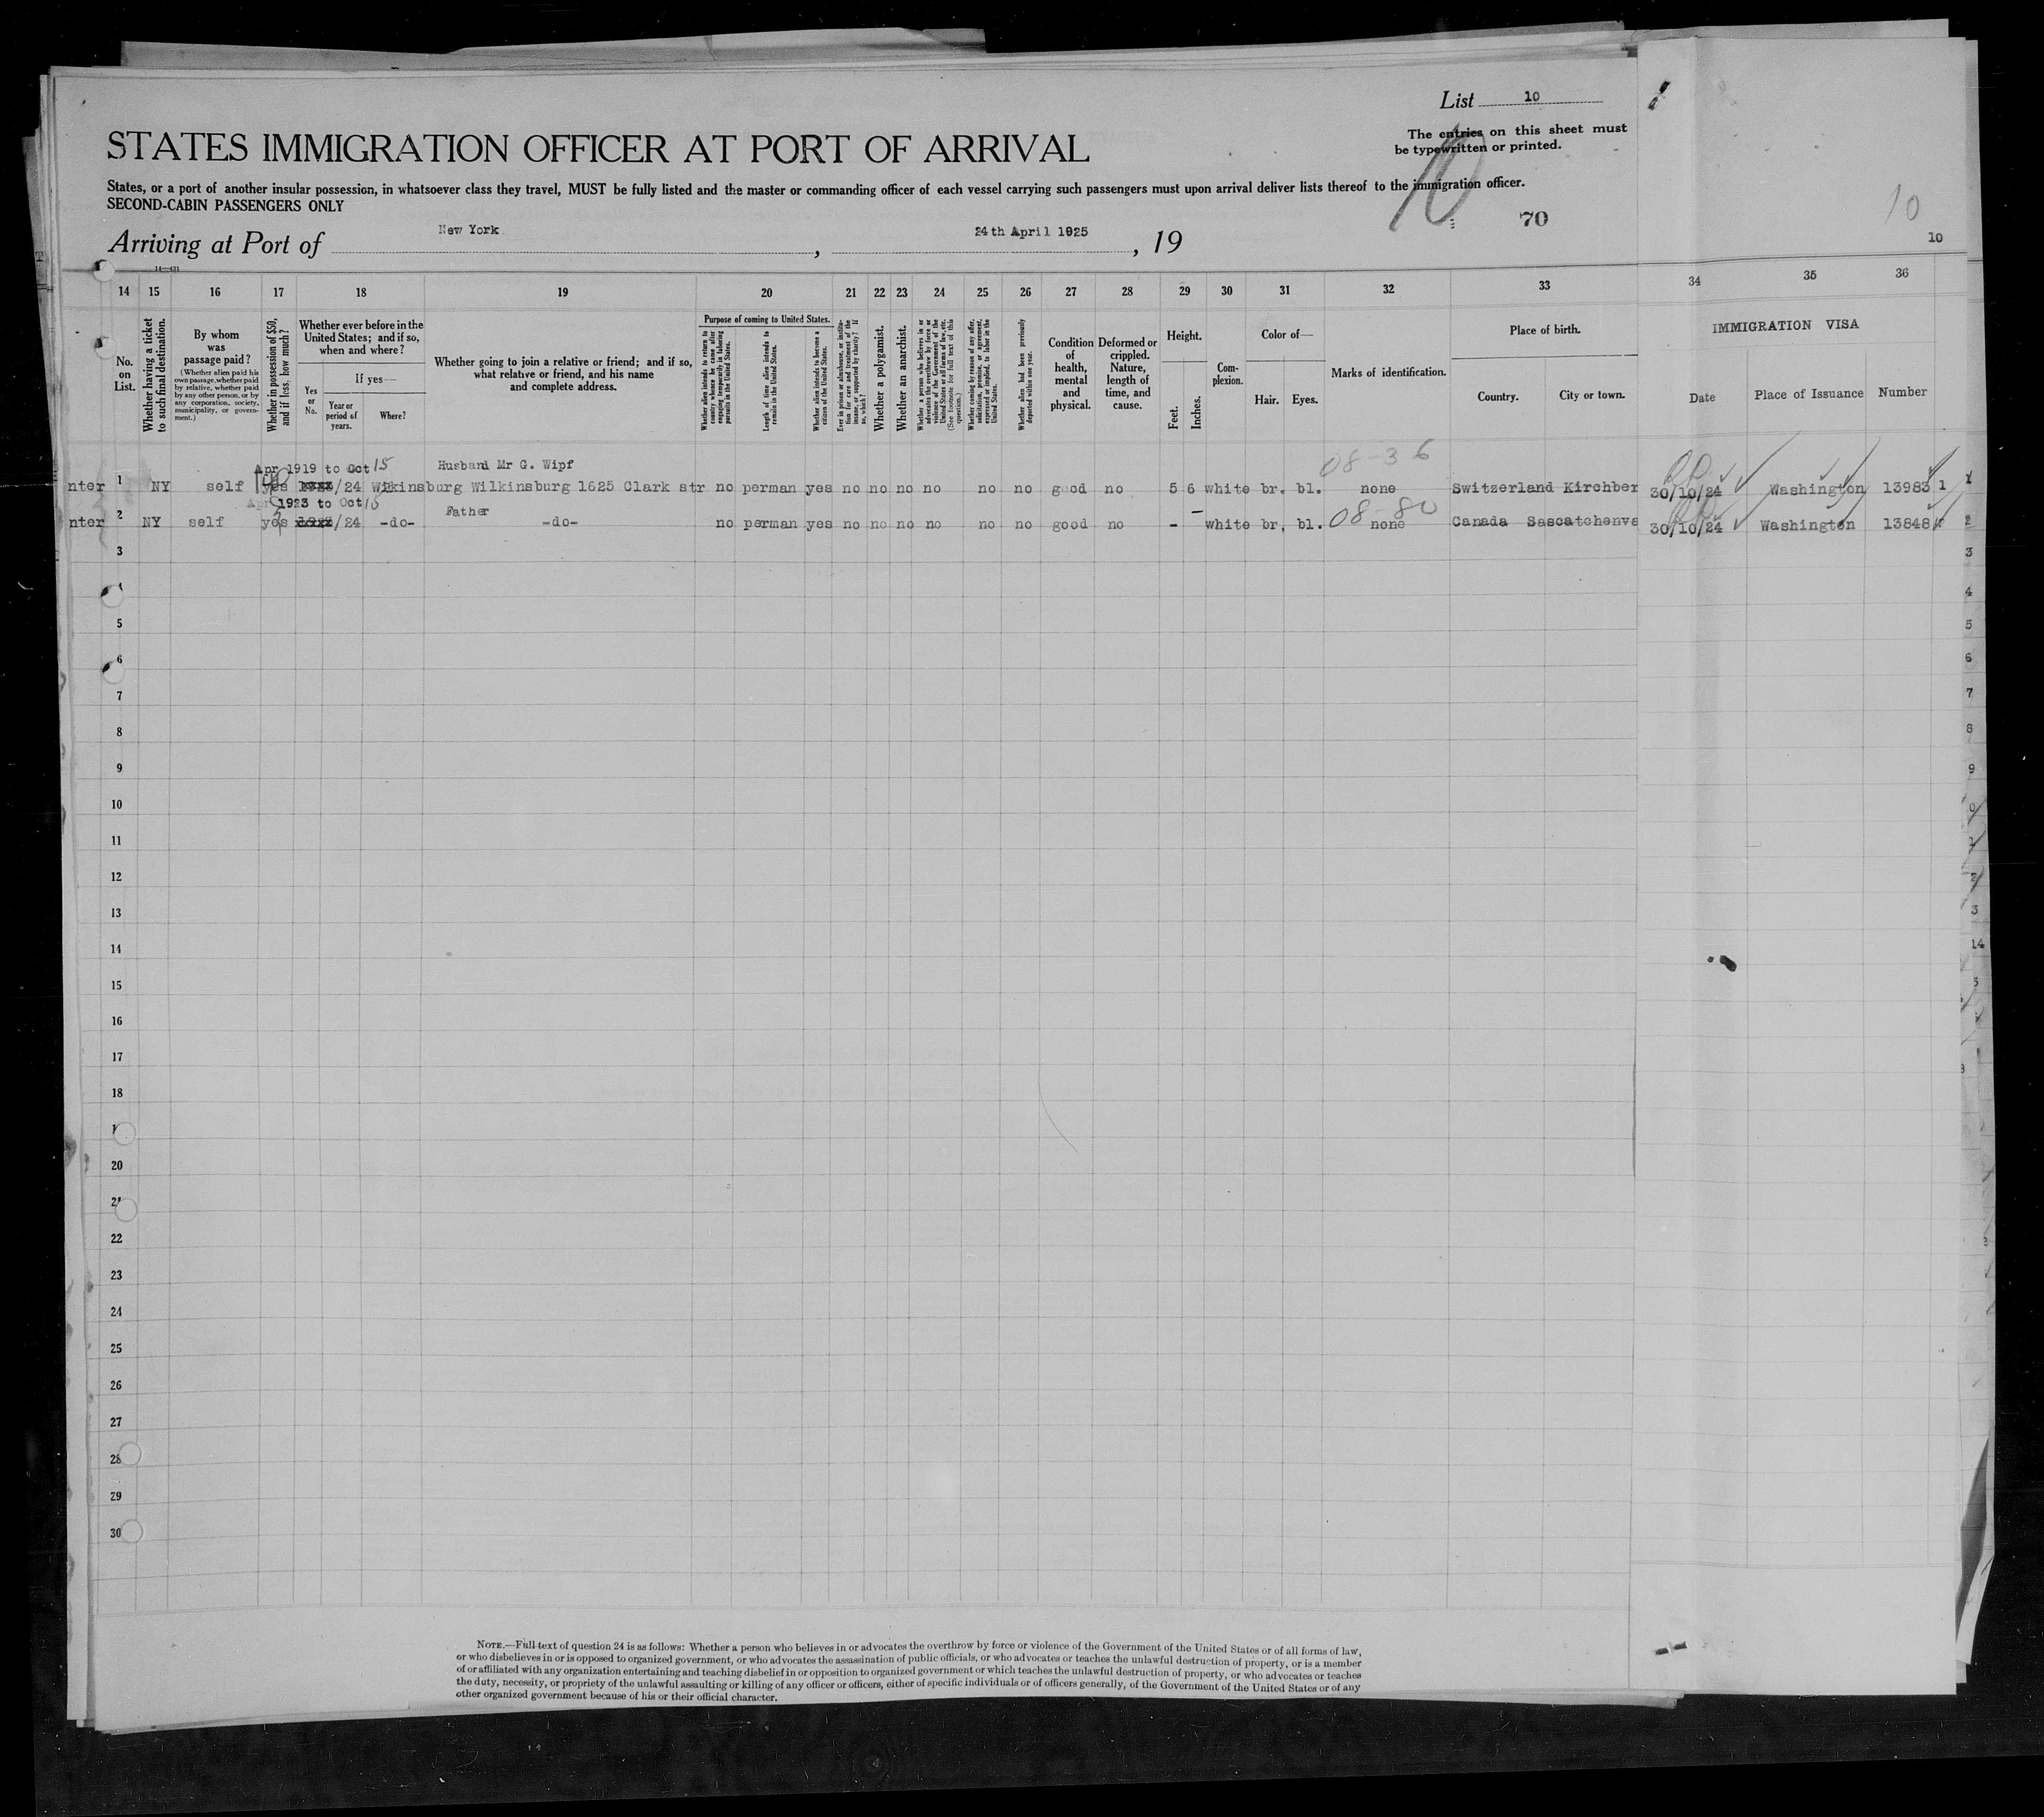 List 10
The entries on this sheet must
be typewritten or printed.
STATES IMMIGRATION OFFICER AT PORT OF ARRIVAL
States, or a port of another insular possession, in whatsoever class they travel, MUST be fully listed and the master or commanding officer of each vessel carrying such passengers must upon arrival deliver lists thereof to the immigration officer.
SECOND-CABIN PASSENGERS ONLY
10
70
10
10
Arriving at Port of New York, 24th April 1925, 19
14 15 16 17 18 19 20 21 22 23 24 25 26 27 28 29 30 31 32 33 34 35 36
No. on List.
Whether having a ticket to such final destination.
By whom was passage paid?
(Whether alien paid his own passage, whether paid by relative, whether paid by any other person, or by any corporation, society, municipality, or government.)
Whether in possession of $50, and if less, how much?
Whether ever before in the United States; and if so, when and where?
Yes or No.
If yes—
Year or period of years.
Where?
Whether going to join a relative or friend; and if so, what relative or friend, and his name and complete address.
Purpose of coming to United States.
Whether alien intends to return to country whence he came after engaging temporarily in laboring pursuits in the United States.
Length of time alien intends to remain in the United States.
Whether alien intends to become a citizen of the United States.
Ever in prison or almshouse, or institution for care and treatment of the insane, or supported by charity? If so, which?
Whether a polygamist.
Whether an anarchist.
Whether a person who believes in or advocates the overthrow by force or violence of the Government of the United States or all forms of law, etc. (See footnote for full text of this question.)
Whether coming by reason of any offer, solicitation, promise, or agreement, expressed or implied, to labor in the United States.
Whether alien had been previously deported within one year.
Condition of health, mental and physical.
Deformed or crippled. Nature, length of time, and cause.
Height.
Feet.
Inches.
Complexion.
Color of—
Hair. Eyes.
Marks of identification.
Place of birth.
Country. City or town.
IMMIGRATION VISA
Date Place of Issuance Number
Apr 1919 to Oct 15 Husband Mr G. Wipf 08-36
nter 1 NY self yes /24 Wilkinsburg Wilkinsburg 1625 Clark str no perman yes no no no no no no good no 5 6 white br. bl. none Switzerland Kirchber 30/10/24 Washington 13983 1
Apr 1923 to Oct 15 Father 08-80
nter 2 NY self yes /24 -do- -do- no perman yes no no no no no no good no - - white br, bl. none Canada Sascatchenva 30/10/24 Washington 13848 2
3
4
5
6
7
8
9
10
11
12
13
14
15
16
17
18
20
22
23
24
25
26
27
28
29
30
NOTE.—Full text of question 24 is as follows: Whether a person who believes in or advocates the overthrow by force or violence of the Government of the United States or of all forms of law,
or who disbelieves in or is opposed to organized government, or who advocates the assassination of public officials, or who advocates or teaches the unlawful destruction of property, or is a member
of or affiliated with any organization entertaining and teaching disbelief in or opposition to organized government or which teaches the unlawful destruction of property, or who advocates or teaches
the duty, necessity, or propriety of the unlawful assaulting or killing of any officer or officers, either of specific individuals or of officers generally, of the Government of the United States or of any
other organized government because of his or their official character.